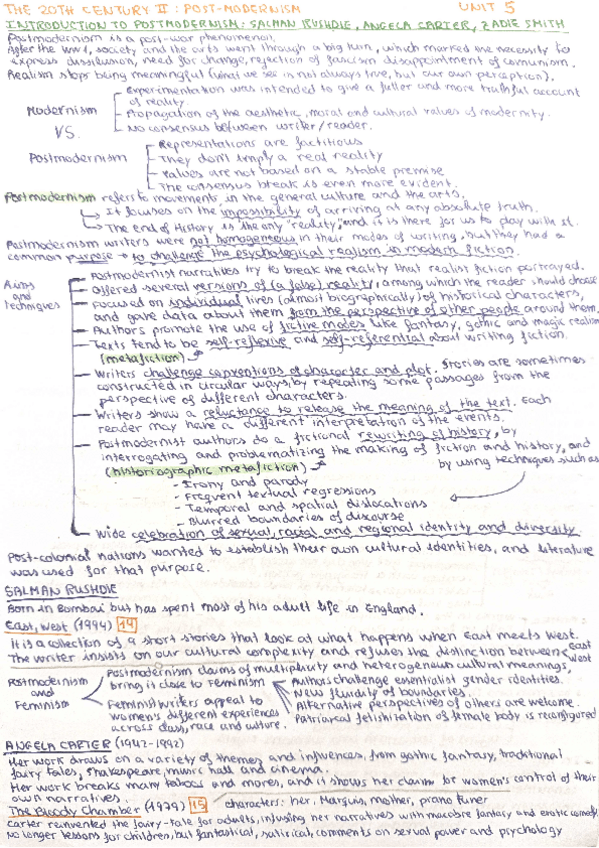 THE 20TH CENTURY II: POST-MODERNISM UNIT 5
INTRODUCTION TO POSTMODERNISM: SALMAN RUSHDIE, ANGELA CARTER, ZADIE SMITH
Postmodernism is a post-war phenomenon.
After the WW, society and the arts went through a big turn, which marked one necessity to
express dissilusion, need for change, rejection of fascism disappointment of comunism.
Realism stops being meaningful (what we see in not always true, but our own perception).
Modernism
VS.
Experimentation was intended to give a fuller and more truthful account
of reality.
Propagation of the aesthetic, moral and cultural values of modernity.
No consensus between writer/reader.
Postmodernism
Representations are factitious
They don't imply a real reality
Values are not based on a stable premise
The consensus break is even more evident.
Postmodernism refers to movements in the general culture and the arts.
It focuses on the impossibility of arriving at any absolute truth.
The end of History is the only "reality" and it is there for us to play with it.
Postmodernism writers were not homogeneous in their modes of writing, but they had a
common purpose → to challenge the psychological realism in modern fiction.
Aims
and
techniques
Postmodernist narratives try to break the reality that realist fiction portrayed.
Offered several versions of (a false) reality, among which the reader should choose
Focused on individual lives (almost biographically) of historical characters,
and gave data about them from the perspective of other people around them.
Authors promote the use of fictive modes like fantasy, gothic and magic realism
Texts tend to be self-reflexive and self-referential about writing fiction.
(metafiction)
Writers challenge conventions of character and plot. Stories are sometimes
constructed in circular ways, by repeating some passages from the
perspective of different characters.
Writers show a reluctance to release the meaning of the text. Each
reader may have a different interpretation of the events.
Postmodernist authors do a frictional rewriting of history, by
interrogating and problematizing the making of fiction and history, and
(historiographic metafiction) by using techniques such as
- Irony and parody
- Frequent textual regressions
- Temporal and spatial dislocations
- Blurred boundaries of discourse
Wide celebration of sexual, racial and regional identity and diversity.
Post-colonial nations wanted to establish their own cultural identities, and literature
was used for that purpose.
SALMAN RUSHDIE
Born in Bombai but has spent most of his adult life in England.
East, West (1994) 14
It is a collection of a short stories that look at what happens when East meets West.
The writer insists on our cultural complexity and refuses the distinction between East
West
Postmodernism
and
Feminism
Postmodernism claims of multiplicity and heterogeneous cultural meanings,
bring it close to Feminism
Feminist writers appeal to
women's different experiences
across class, race and culture.
Authors challenge essentialist gender identities.
New fluidity of boundaries.
Alternative perspectives of others are welcome.
Patriarcal fetishization of female body is reconfigured
ANGELA CARTER (1942-1992)
Her work draws on a variety of themes and influences, from gothic fantasy, traditional
fairy tales, Shakespeare, music hall and cinema.
Her work breaks many taboos and mores, and it shows her claim for women's control of their
own narratives.
The Bloody Chamber (1979) 15 characters: her, Marquis, mother, piano tuner
Carter reinvented the fairy-tale for adults, infusing her narratives with macabre fantasy and erotic comedy.
No longer lessons for children, but fantastical, satirical, comments on sexual power and psychology